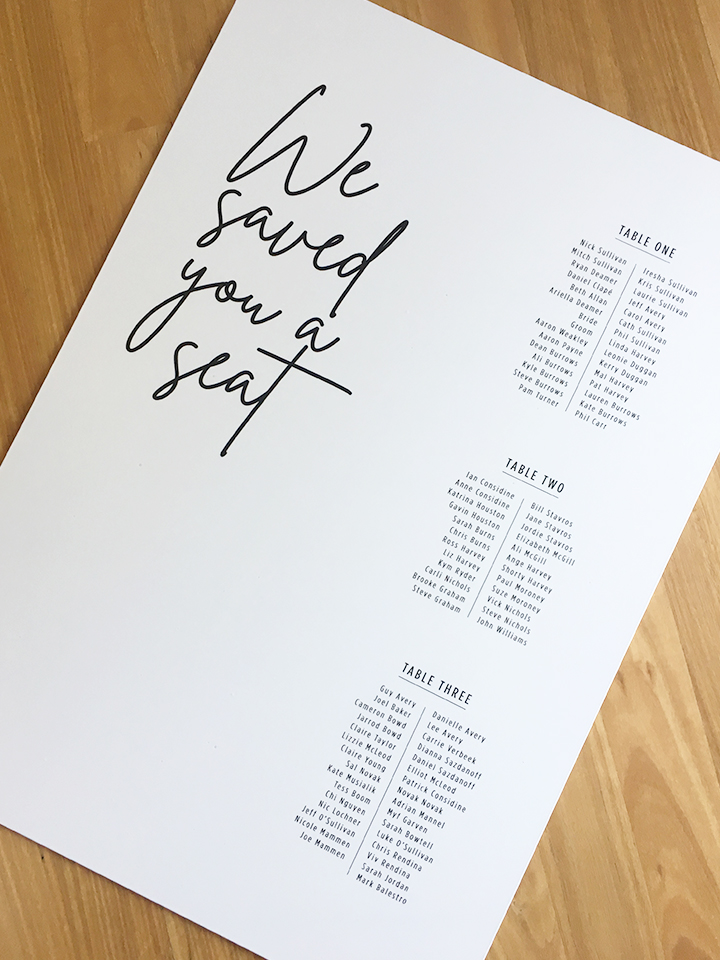 We
saved
you a
seat
TABLE ONE
Nick Sullivan
Mitch Sullivan
Ryan Deamer
Daniel Clapé
Beth Allan
Ariella Deamer
Bride
Groom
Aaron Weakley
Aaron Payne
Dean Burrows
Ali Burrows
Kyle Burrows
Steve Burrows
Pam Turner
Iresha Sullivan
Kris Sullivan
Laurie Sullivan
Jeff Avery
Carol Avery
Cath Sullivan
Phil Sullivan
Linda Harvey
Leonie Duggan
Kerry Duggan
Mal Harvey
Pat Harvey
Lauren Burrows
Kate Burrows
Phil Carr
TABLE TWO
Ian Considine
Anne Considine
Katrina Houston
Gavin Houston
Sarah Burns
Chris Burns
Ross Harvey
Liz Harvey
Kym Ryder
Carli Nichols
Brooke Graham
Steve Graham
Bill Stavros
Jane Stavros
Jordie Stavros
Elizabeth McGill
Ali McGill
Ange Harvey
Shorty Harvey
Paul Moroney
Suze Moroney
Vick Nichols
Steve Nichols
John Williams
TABLE THREE
Guy Avery
Joel Baker
Cameron Bowd
Jarrod Bowd
Claire Taylor
Lizzie McLeod
Claire Young
Sal Novak
Kate Musialik
Tess Boom
Chi Nguyen
Nic Lochner
Jeff O'Sullivan
Nicole Mammen
Joe Mammen
Danielle Avery
Lee Avery
Carrie Verbeek
Dianna Sazdanoff
Daniel Sazdanoff
Elliot McLeod
Patrick Considine
Novak Novak
Adrian Mannel
Myf Garven
Sarah Bowtell
Luke O'Sullivan
Chris Rendina
Viv Rendina
Sarah Jordan
Mark Balestro